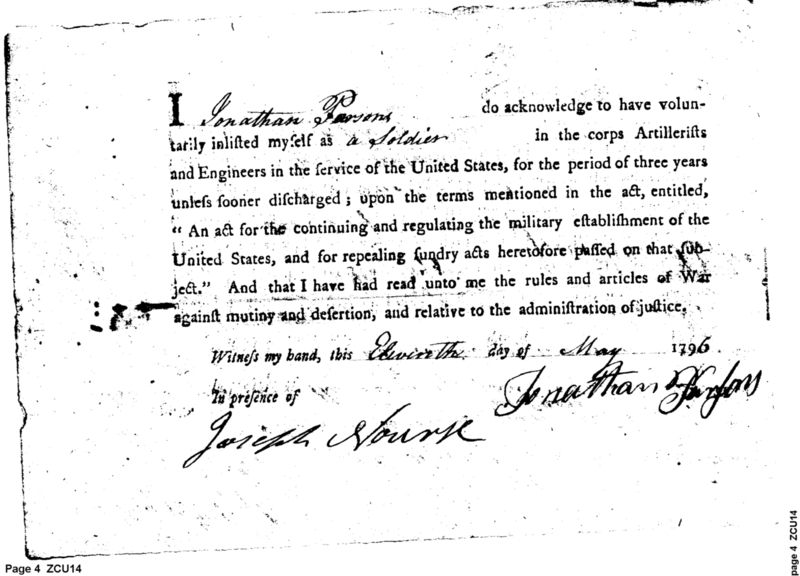 I Jonathan Parsons do acknowledge to have volun-
tarily inlisted myſelf as a Soldier in the corps Artilleriſts
and Engineers in the ſervice of the United States, for the period of three years
unleſs ſooner diſcharged ; upon the terms mentioned in the act, entitled,
“ An act for the continuing and regulating the military eſtabliſhment of the
United States, and for repealing ſundry acts heretofore paſſed on that ſub-
ject.” And that I have had read unto me the rules and articles of War
againſt mutiny and deſertion, and relative to the adminiſtration of juſtice.
Witneſs my hand, this Eleventh day of May 1796
In preſence of Jonathan Parſons
Joseph Nourse
Page 4 ZCU14
page 4 ZCU14